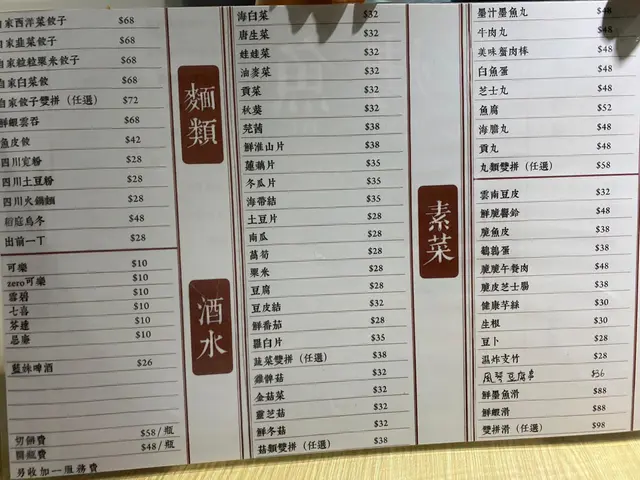 自家西洋菜餃子 $68
自家韭菜餃子 $68
自家粒粒粟米餃子 $68
自家白菜餃 $68
自家餃子雙拼（任選） $72
鮮蝦雲吞 $68
魚皮餃 $42
四川寬粉 $28
四川土豆粉 $28
四川火鍋麵 $28
稻庭烏冬 $48
出前一丁 $28
麵類
可樂 $10
zero可樂 $10
雪碧 $10
七喜 $10
芬達 $10
忌廉 $10
藍妹啤酒 $26
酒水
切餅費 $58/瓶
開瓶費 $48/瓶
另收加一服務費
海白菜 $32
唐生菜 $32
娃娃菜 $32
油麥菜 $32
貢菜 $32
秋葵 $32
茼蒿 $38
鮮淮山片 $38
蓮藕片 $35
冬瓜片 $35
海帶結 $35
土豆片 $28
南瓜 $28
萵筍 $28
粟米 $28
豆腐 $28
豆皮結 $32
鮮番茄 $28
蘿白片 $35
蔬菜雙拼（任選） $38
雞髀菇 $32
金菇菜 $32
靈芝菇 $32
鮮冬菇 $32
菇類雙拼（任選） $38
素菜
墨汁墨魚丸 $48
牛肉丸 $48
美味蟹肉棒 $48
白魚蛋 $48
芝士丸 $48
魚腐 $52
海膽丸 $48
貢丸 $48
丸類雙拼（任選） $58
雲南豆皮 $32
鮮脆響鈴 $48
脆魚皮 $38
鵪鶉蛋 $38
脆脆午餐肉 $48
脆皮芝士腸 $38
健康芋絲 $30
生根 $30
豆卜 $28
温炸支竹 $28
風琴豆腐串 $36
鮮墨魚滑 $88
鮮蝦滑 $88
雙拼滑（任選） $98